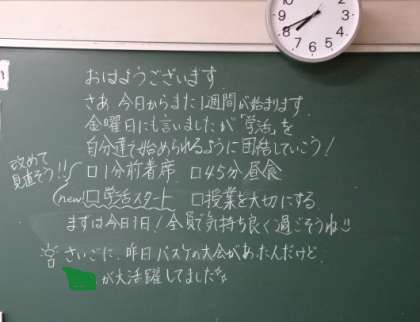 おはようございます
さあ 今日からまた1週間が始まります
金曜日にも言いましたが「学活」を
自分達で始められるように団結していこう！
改めて
見直そう!!
□1分前着席 □45分昼食
(new) □学活スタート □授業を大切にする
まずは今日1日！全員で気持ち良く過ごそうね!!
さいごに、昨日バスケの大会があったんだけど
が大活躍してました
12
1
2
3
4
5
6
7
8
9
10
11